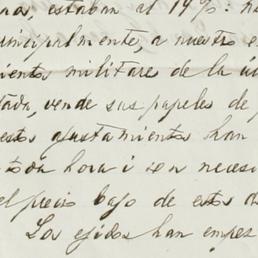 estaban al 19%: ha
principalmente, a nuestro e
ientos militares de la ú
tada, vende sus papeles de
estos ajustamientos han
toda hora i con neces
el precio bajo de estos
Los ejidos han empez